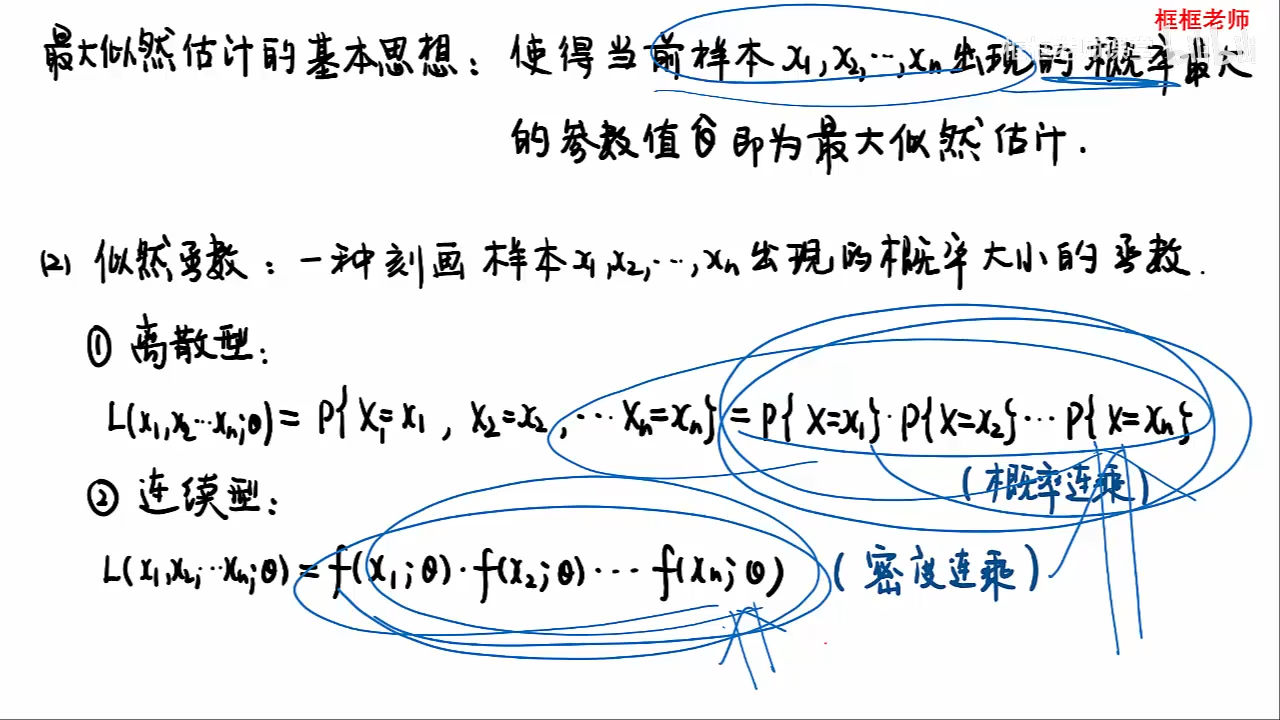 框框老师
最大似然估计的基本思想：使得当前样本 x₁,x₂,…,xₙ 出现的概率最大
的参数值 θ̂ 即为最大似然估计.
(2) 似然函数：一种刻画样本 x₁,x₂,…,xₙ 出现的概率大小的函数.
① 离散型：
L(x₁,x₂…xₙ;θ) = P{X₁=x₁, X₂=x₂, …Xₙ=xₙ} = P{X=x₁}·P{X=x₂}…P{X=xₙ}
(概率连乘)
② 连续型：
L(x₁,x₂,…xₙ;θ) = f(x₁;θ)·f(x₂;θ)…f(xₙ;θ) (密度连乘)